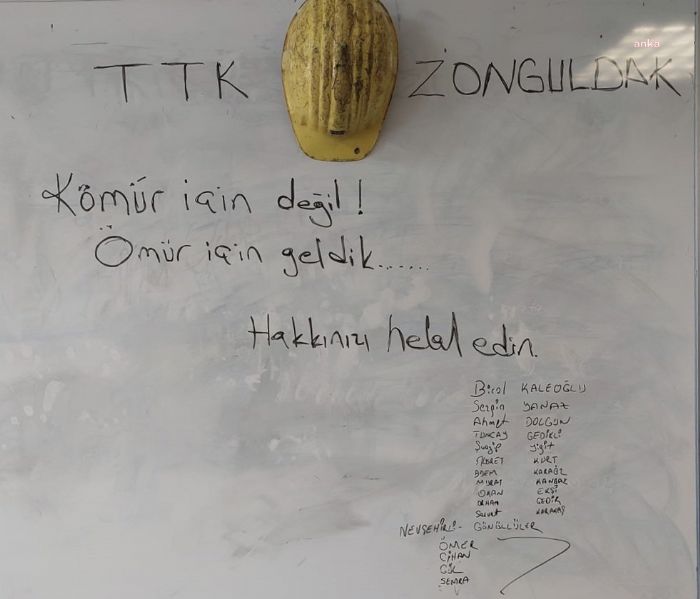 anka
TTK ZONGULDAK
Kömür için değil!
Ömür için geldik......
Hakkınızı helal edin.
Birol KALEOĞLU
Sezgin YANAZ
Ahmet DOLGUN
TUNCAY GEDİKLİ
Yiğit
KURT
ADEM KARAGÖZ
MURAT KANBAZ
OKAN EKŞİ
ORHAN GEDİK
Suvat KARAKAŞ
NEVŞEHİRLİ- GÖNÜLLÜLER
ÖMER
CİHAN
GÜL
SEMRA